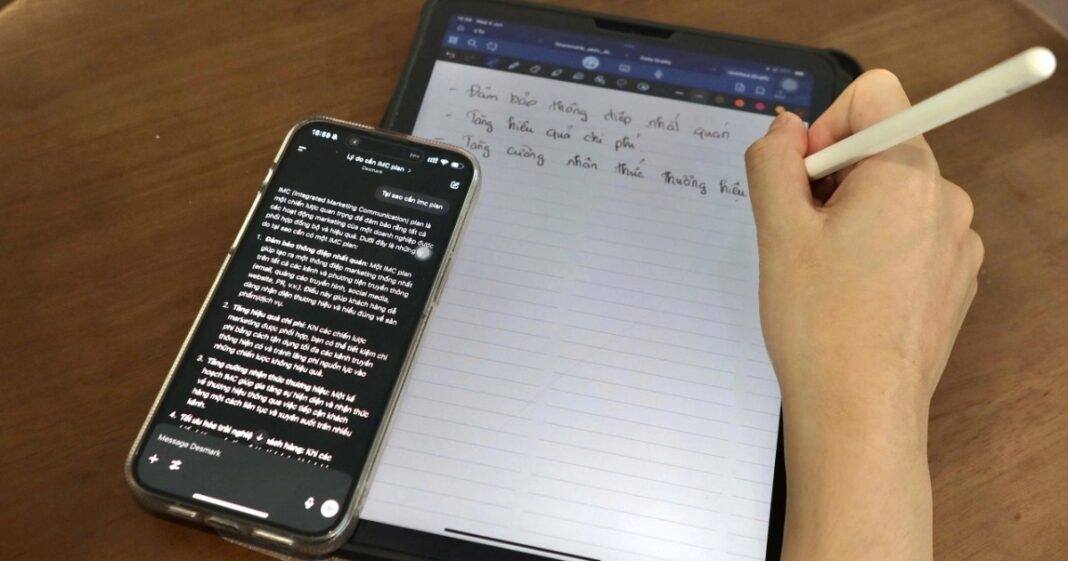 16:59
Lý do cần IMC plan >
Desmark
Tại sao cần imc plan
IMC (Integrated Marketing Communication) plan là
một chiến lược quan trọng để đảm bảo rằng tất cả
các hoạt động marketing của một doanh nghiệp được
phối hợp đồng bộ và hiệu quả. Dưới đây là những
do tại sao cần có một IMC plan:
1. Đảm bảo thông điệp nhất quán: Một IMC plan
giúp tạo ra một thông điệp marketing thống nhất
trên tất cả các kênh và phương tiện truyền thông
(email, quảng cáo truyền hình, social media,
website, PR, v.v.). Điều này giúp khách hàng dễ
dàng nhận diện thương hiệu và hiểu đúng về sản
phẩm/dịch vụ.
2. Tăng hiệu quả chi phí: Khi các chiến lược
marketing được phối hợp, bạn có thể tiết kiệm chi
phí bằng cách tận dụng tối đa các kênh truyền
thông hiện có và tránh lãng phí nguồn lực vào
những chiến lược không hiệu quả.
3. Tăng cường nhận thức thương hiệu: Một kế
hoạch IMC giúp gia tăng sự hiện diện và nhận thức
về thương hiệu thông qua việc tiếp cận khách
hàng một cách liên tục và xuyên suốt trên nhiều
kênh.
4. Tối ưu hóa trải nghiệ khách hàng: Khi các
Message Desmark
- Đảm bảo thông điệp nhất quán
- Tăng hiệu quả chi phí
- Tăng cường nhân thức thương hiệu